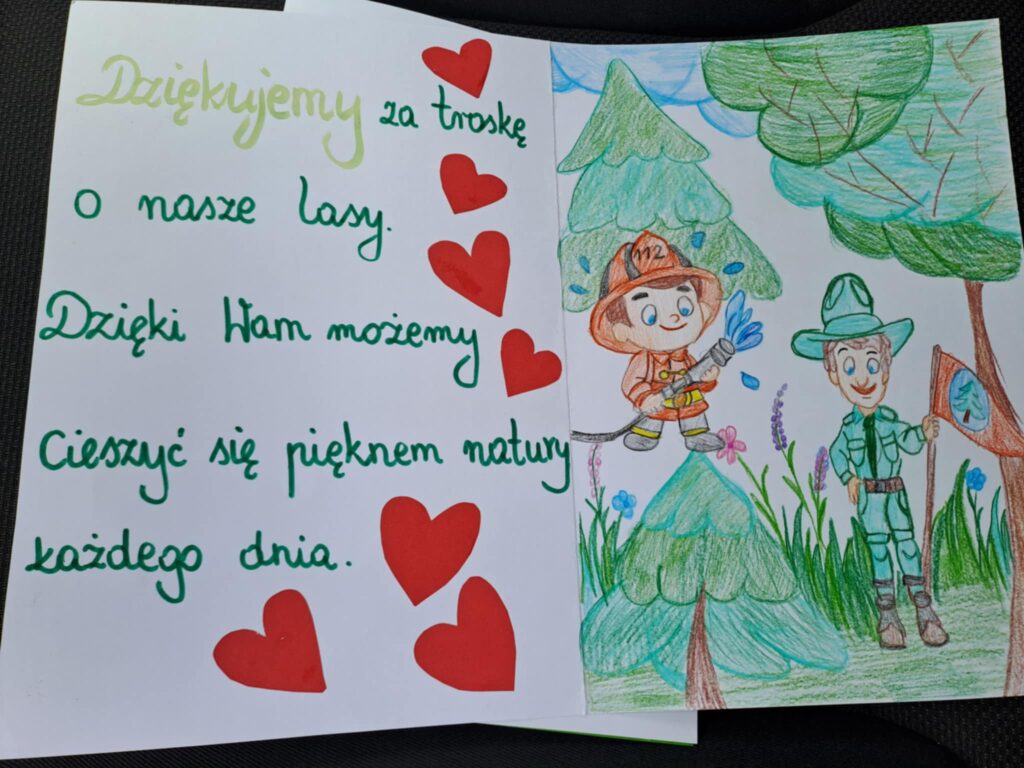 Dziękujemy za troskę
o nasze lasy.
Dzięki Wam możemy
cieszyć się pięknem natury
każdego dnia.
112